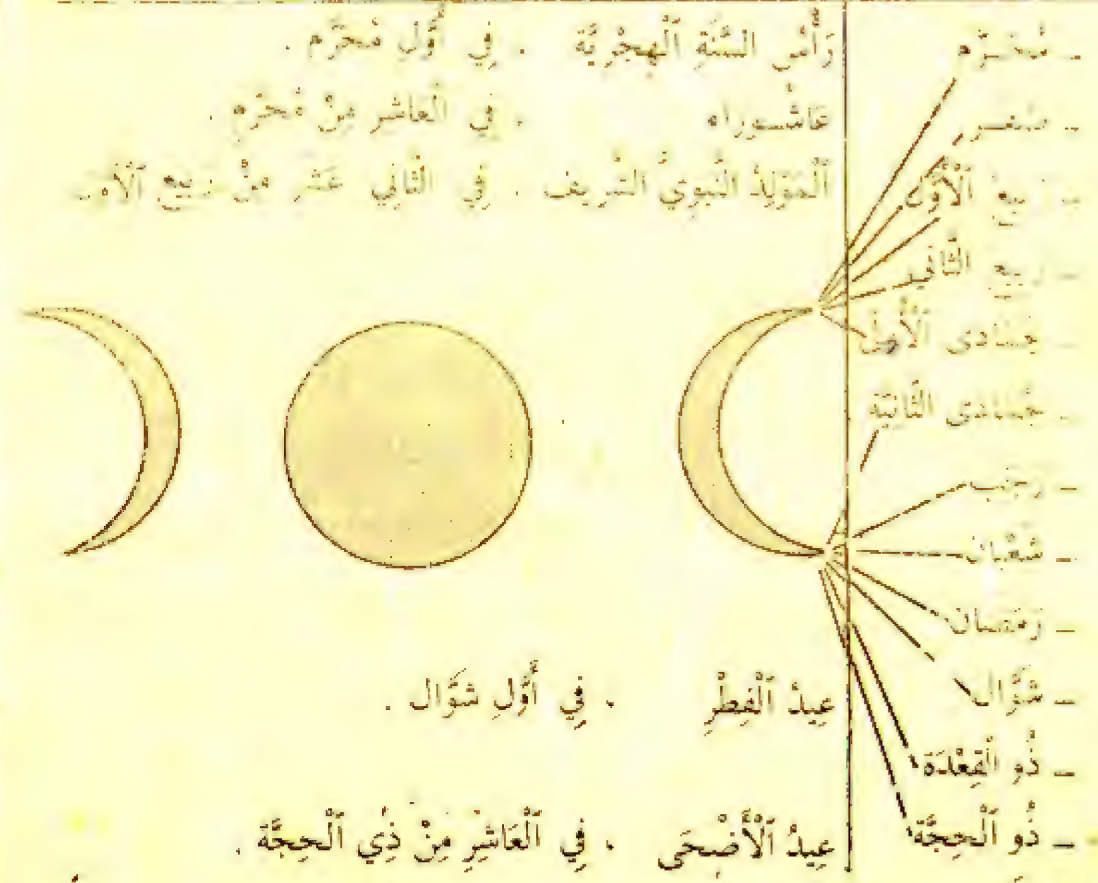 - مُحَرَّم
- صَفَر
- رَبِيع ٱلْأَوَّل
- رَبِيع الثَّانِي
- جُمَادَى ٱلْأُولَى
- جُمَادَى الثَّانِيَة
- رَجَب
- شَعْبَان
- رَمَضَان
- شَوَّال
- ذُو ٱلْقِعْدَة
- ذُو ٱلْحِجَّة
رَأْسُ السَّنَةِ ٱلْهِجْرِيَّة . فِي أَوَّلِ مُحَرَّم .
عَاشُــورَاء . فِي ٱلْعَاشِرِ مِنْ مُحَرَّم .
ٱلْمَوْلِدُ النَّبَوِيُّ الشَّرِيف . فِي الثَّانِي عَشَر مِنْ رَبِيع ٱلْأَوَّل
عِيدُ ٱلْفِطْرِ . فِي أَوَّلِ شَوَّال .
عِيدُ ٱلْأَضْحَى . فِي ٱلْعَاشِرِ مِنْ ذِي ٱلْحِجَّة .